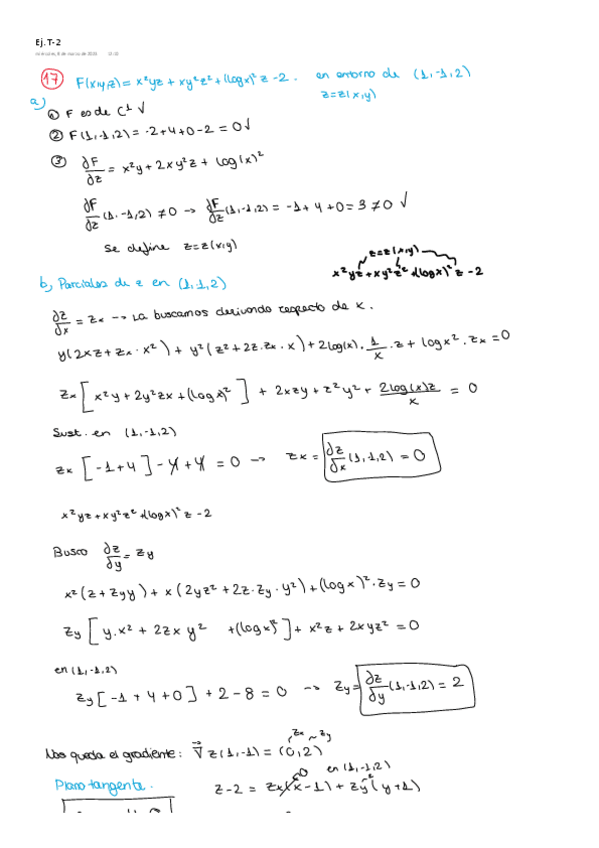 Ej. T-2
miércoles, 8 de marzo de 2023
17) F(x,y,z) = x²yz + xy²z² + (log x)² z - 2. en entorno de (1,-1,2)
z=z(x,y)
a)
① F es de C¹ √
② F(1,-1,2) = -2+4+0-2 = 0 √
③ ∂F/∂z = x²y + 2xy²z + log(x)²
∂F/∂z (1,-1,2) ≠ 0 → ∂F/∂z (1,-1,2) = -1+4+0 = 3 ≠ 0 √
Se define z=z(x,y)
z=z(x,y)
x²yz + xy²z² + (log x)² z - 2
b) Parciales de z en (1,1,2)
∂z/∂x = zx → La buscamos derivando respecto de x.
y(2xz + zx · x²) + y²(z² + 2z · zx · x) + 2log(x) · 1/x · z + log x² · zx = 0
zx [x²y + 2y²zx + (log x)²] + 2xzy + z²y² + 2log(x)z/x = 0
Sust. en (1,-1,2)
zx [-1+4] - 4 + 4 = 0 → zx = ∂z/∂x (1,1,2) = 0
x²yz + xy²z² + (log x)² z - 2
Busco ∂z/∂y = zy
x²(z + zy y) + x(2yz² + 2z · zy · y²) + (log x)² · zy = 0
zy [y · x² + 2zx y² + (log x)²] + x²z + 2xyz² = 0
en (1,-1,2)
zy [-1 + 4 + 0] + 2 - 8 = 0 → zy = ∂z/∂y (1,-1,2) = 2
zx zy
Nos queda el gradiente: ∇z(1,-1) = (0,2)
en (1,-1,2)
Plano tangente. z-2 = zx(x-1) + zy(y+1)
0 2